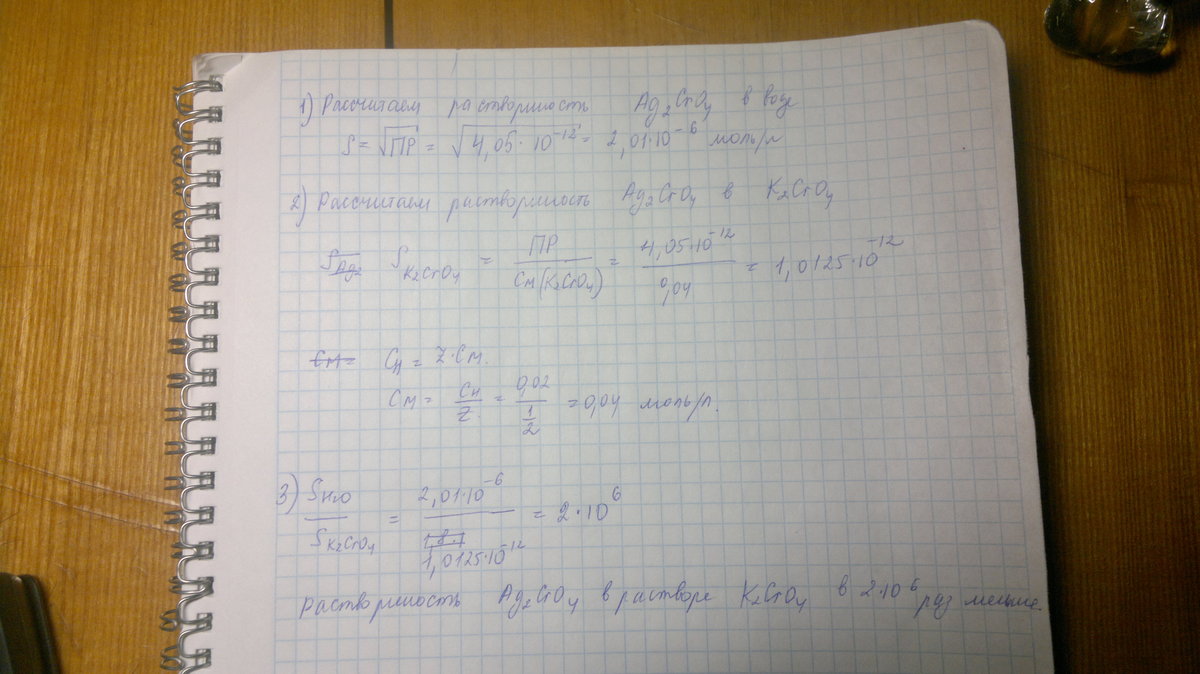 1) Рассчитаем растворимость Ag₂CrO₄ в воде
S = √ПР = √4,05·10⁻¹² = 2,01·10⁻⁶ моль/л
2) Рассчитаем растворимость Ag₂CrO₄ в K₂CrO₄
S Ag₂ S K₂CrO₄ = ПР / Cм(K₂CrO₄) = 4,05·10⁻¹² / 0,04 = 1,0125·10⁻¹²
Cм = Cн = Z·Cм.
Cм = Cн / Z = 0,02 / ½ = 0,04 моль/л.
3) S H₂O / S K₂CrO₄ = 2,01·10⁻⁶ / 1,0125·10⁻¹² = 2·10⁶
Растворимость Ag₂CrO₄ в растворе K₂CrO₄ в 2·10⁶ раз меньше.